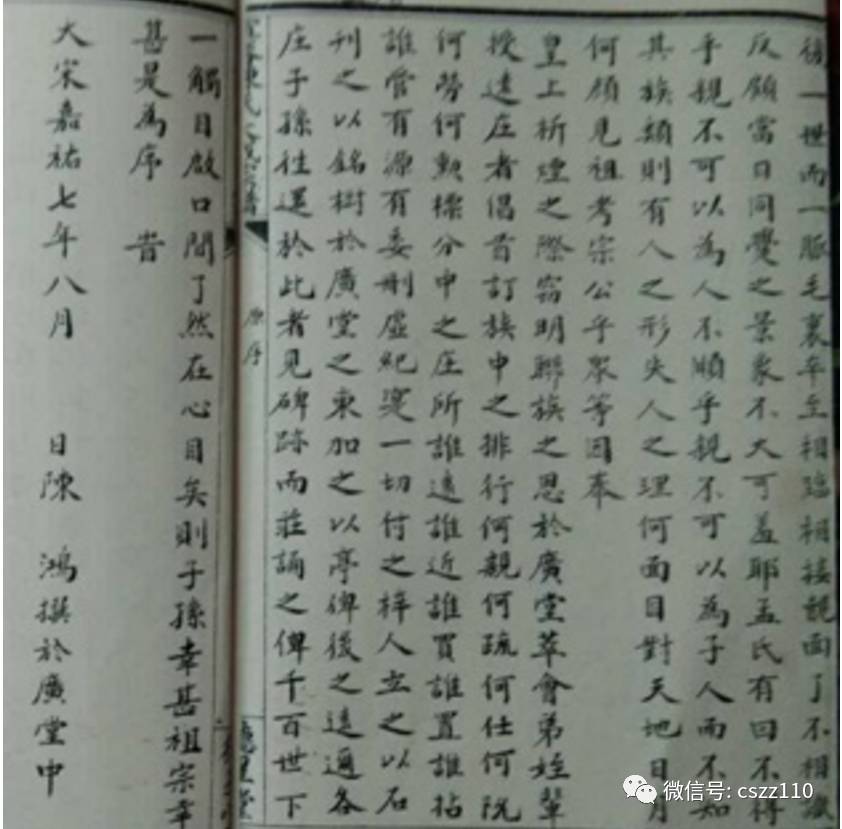 後一世而一脈毛裏卒至相臨相接覿面了不相
反顧當日同爨之景象不大可羞耶孟氏有曰不得
乎親不可以為人不順乎親不可以為子人而不知
其族類則有人之形失人之理何面目對天地日月
何顏見祖考宗公乎眾等因奉
皇上析煙之際窃明聯族之恩於廣堂萃會弟姪輩
授遠庄者倡首訂族中之排行何親何疏何仕何阮
何勞何勲標分申之庄所誰遠誰近誰買誰置誰拈
誰管有源有委刑虛紀寔一切付之梓人立之以石
刊之以銘樹於廣堂之東加之以亭俾後之遠邇各
庄子孫往還於此者見碑跡而莊誦之俾千百世下
原序
一觸目啟口間了然在心目矣則子孫幸甚祖宗幸
甚是為序 旹
大宋嘉祐七年八月 日陳 鴻撰於廣堂中
微信号: cszz110